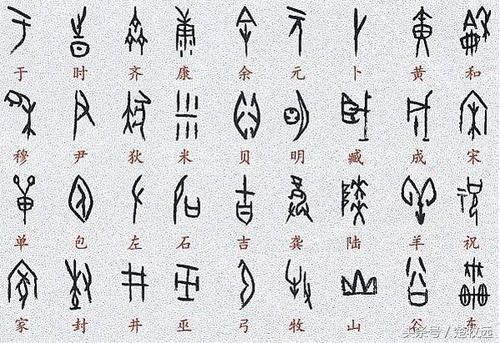 于 时 齐 康 余 元 卜 黄 和
穆 尹 狄 米 贝 明 臧 成 宋
单 包 左 石 吉 龚 陆 羊 祝
家 封 井 巫 弓 牧 山 谷 车
头条号/楚牧远